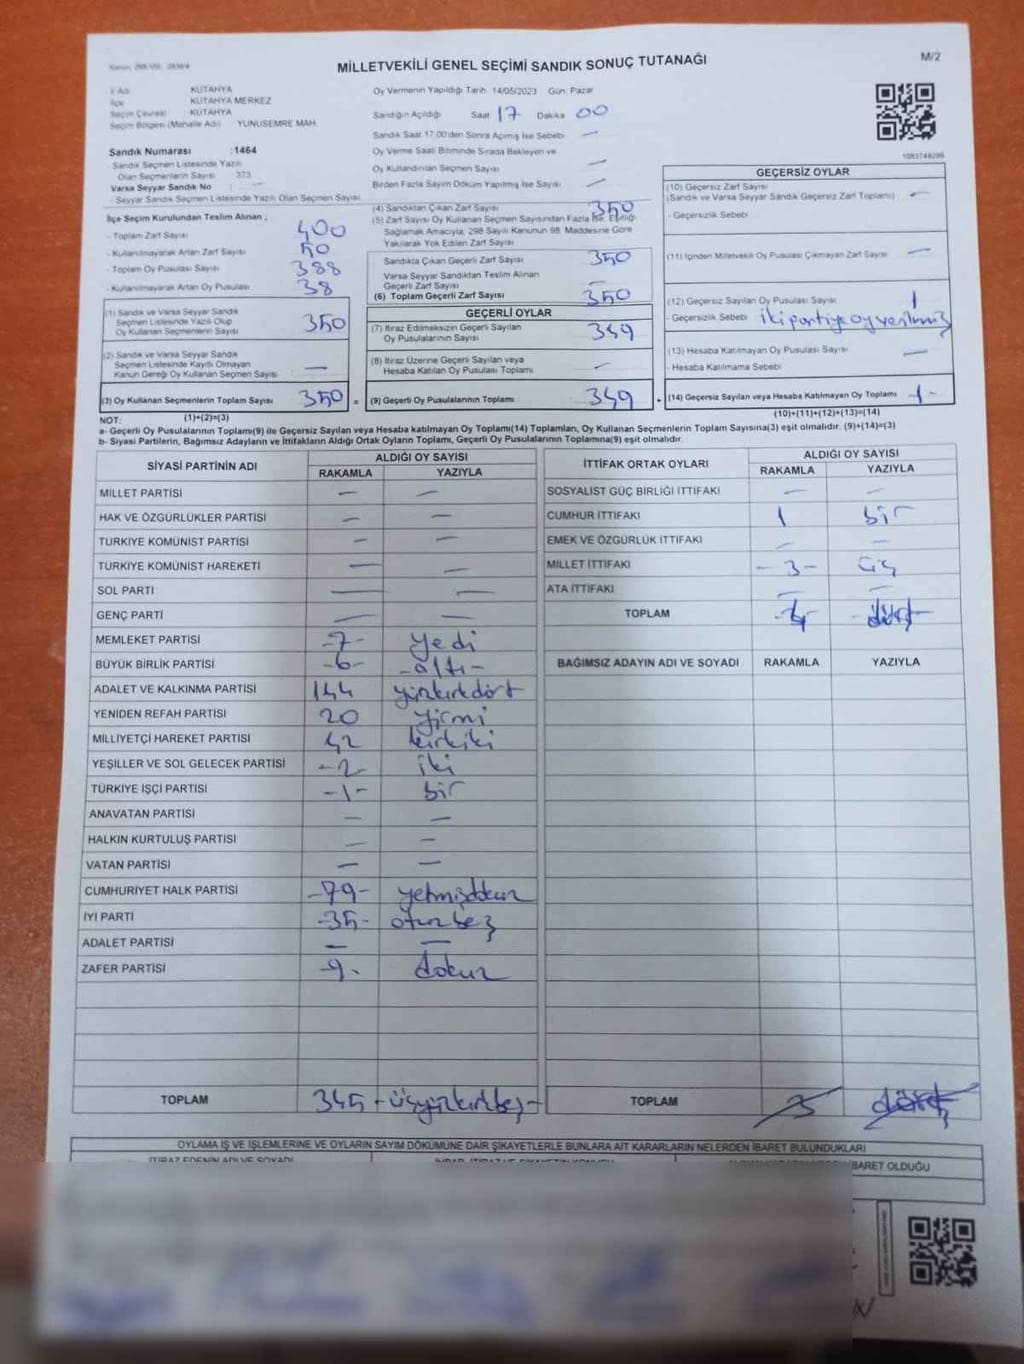 MİLLETVEKİLİ GENEL SEÇİMİ SANDIK SONUÇ TUTANAĞI
M/2
İl Adı KÜTAHYA
İlçe KÜTAHYA MERKEZ
Seçim Çevresi KÜTAHYA
Seçim Bölgesi (Mahalle Adı) YUNUSEMRE MAH.
Oy Vermenin Yapıldığı Tarih 14/05/2023 Gün: Pazar
Sandığın Açıldığı Saat 17 Dakika 00
Sandık Saat 17:00'den Sonra Açmış İse Sebebi —
Oy Verme Saati Bitiminde Sırada Bekleyen ve
Oy Kullandırılan Seçmen Sayısı —
Birden Fazla Sayım Döküm Yapılmış İse Sayısı —
Sandık Numarası :1464
Sandık Seçmen Listesinde Yazılı
Olan Seçmenlerin Sayısı 373
Varsa Seyyar Sandık No
Seyyar Sandık Seçmen Listesinde Yazılı Olan Seçmen Sayısı
İlçe Seçim Kurulundan Teslim Alınan ;
- Toplam Zarf Sayısı 400
- Kullanılmayarak Artan Zarf Sayısı 50
- Toplam Oy Pusulası Sayısı 388
- Kullanılmayarak Artan Oy Pusulası 38
(1) Sandık ve Varsa Seyyar Sandık
Seçmen Listesinde Yazılı Olup
Oy Kullanan Seçmenlerin Sayısı 350
(2) Sandık ve Varsa Seyyar Sandık
Seçmen Listesinde Kayıtlı Olmayan
Kanun Gereği Oy Kullanan Seçmen Sayısı —
(3) Oy Kullanan Seçmenlerin Toplam Sayısı 350 =
(4) Sandıktan Çıkan Zarf Sayısı 350
(5) Zarf Sayısı Oy Kullanan Seçmen Sayısından Fazla İse, Eşitliği
Sağlamak Amacıyla, 298 Sayılı Kanunun 98. Maddesine Göre
Yakılarak Yok Edilen Zarf Sayısı
Sandıkta Çıkan Geçerli Zarf Sayısı 350
Varsa Seyyar Sandıktan Teslim Alınan
Geçerli Zarf Sayısı —
(6) Toplam Geçerli Zarf Sayısı 350
GEÇERLİ OYLAR
(7) İtiraz Edilmeksizin Geçerli Sayılan
Oy Pusulalarının Sayısı 349
(8) İtiraz Üzerine Geçerli Sayılan veya
Hesaba Katılan Oy Pusulası Toplamı —
(9) Geçerli Oy Pusulalarının Toplamı 349 +
GEÇERSİZ OYLAR
(10) Geçersiz Zarf Sayısı
(Sandık ve Varsa Seyyar Sandık Geçersiz Zarf Toplamı) —
- Geçersizlik Sebebi
(11) İçinden Milletvekili Oy Pusulası Çıkmayan Zarf Sayısı —
(12) Geçersiz Sayılan Oy Pusulası Sayısı 1
- Geçersizlik Sebebi iki partiye oy verilmiş
(13) Hesaba Katılmayan Oy Pusulası Sayısı —
- Hesaba Katılmama Sebebi
(14) Geçersiz Sayılan veya Hesaba Katılmayan Oy Toplamı 1-
NOT: (1)+(2)=(3)
(10)+(11)+(12)+(13)=(14)
a- Geçerli Oy Pusulalarının Toplamı(9) ile Geçersiz Sayılan veya Hesaba Katılmayan Oy Toplamı(14) Toplamları, Oy Kullanan Seçmenlerin Toplam Sayısına(3) eşit olmalıdır. (9)+(14)=(3)
b- Siyasi Partilerin, Bağımsız Adayların ve İttifakların Aldığı Ortak Oyların Toplamı, Geçerli Oy Pusulalarının Toplamına(9) eşit olmalıdır.
SİYASİ PARTİNİN ADI ALDIĞI OY SAYISI
RAKAMLA YAZIYLA
MİLLET PARTİSİ — —
HAK VE ÖZGÜRLÜKLER PARTİSİ — —
TÜRKİYE KOMÜNİST PARTİSİ — —
TÜRKİYE KOMÜNİST HAREKETİ — —
SOL PARTİ — —
GENÇ PARTİ — —
MEMLEKET PARTİSİ -7- yedi
BÜYÜK BİRLİK PARTİSİ -6- -altı-
ADALET VE KALKINMA PARTİSİ 144 yüzkırkdört
YENİDEN REFAH PARTİSİ 20 yirmi
MİLLİYETÇİ HAREKET PARTİSİ 42 kırkiki
YEŞİLLER VE SOL GELECEK PARTİSİ -2- iki
TÜRKİYE İŞÇİ PARTİSİ -1- bir
ANAVATAN PARTİSİ — —
HALKIN KURTULUŞ PARTİSİ — —
VATAN PARTİSİ — —
CUMHURİYET HALK PARTİSİ -79- yetmişdokuz
İYİ PARTİ -35- otuzbeş
ADALET PARTİSİ — —
ZAFER PARTİSİ -9- dokuz
TOPLAM 345 - üçyüzkırkbeş-
İTTİFAK ORTAK OYLARI ALDIĞI OY SAYISI
RAKAMLA YAZIYLA
SOSYALİST GÜÇ BİRLİĞİ İTTİFAKI — —
CUMHUR İTTİFAKI 1 bir
EMEK VE ÖZGÜRLÜK İTTİFAKI — —
MİLLET İTTİFAKI -3- üç
ATA İTTİFAKI — —
TOPLAM 4 dört
BAĞIMSIZ ADAYIN ADI VE SOYADI RAKAMLA YAZIYLA
TOPLAM
OYLAMA İŞ VE İŞLEMLERİNE VE OYLARIN SAYIM DÖKÜMÜNE DAİR ŞİKAYETLERLE BUNLARA AİT KARARLARIN NELERDEN İBARET BULUNDUKLARI
İTİRAZ EDENİN ADI VE SOYADI
İBARET OLDUĞU